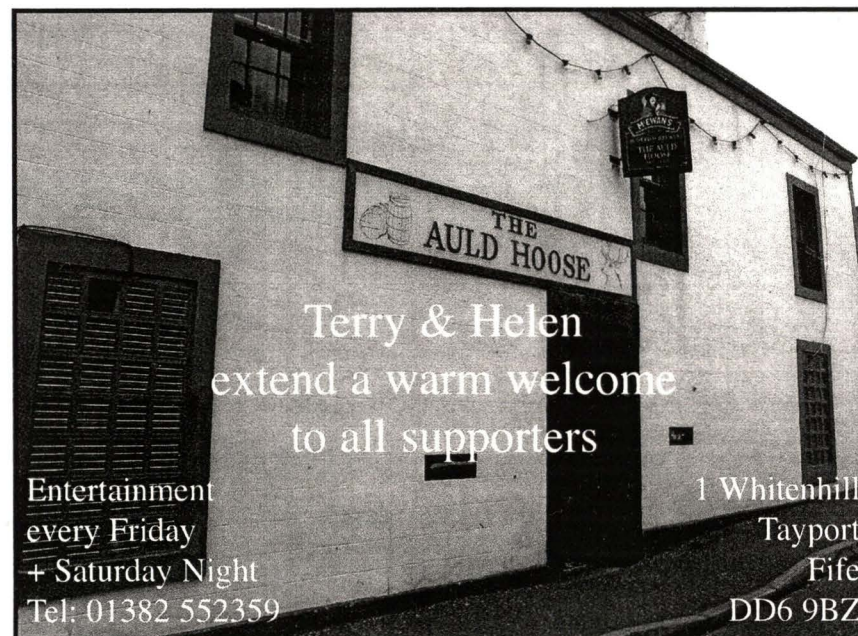 McEWANS
THE AULD
HOOSE
THE
AULD HOOSE
Terry & Helen
extend a warm welcome
to all supporters
Entertainment
every Friday
+ Saturday Night
Tel: 01382 552359
1 Whitenhill
Tayport
Fife
DD6 9BZ